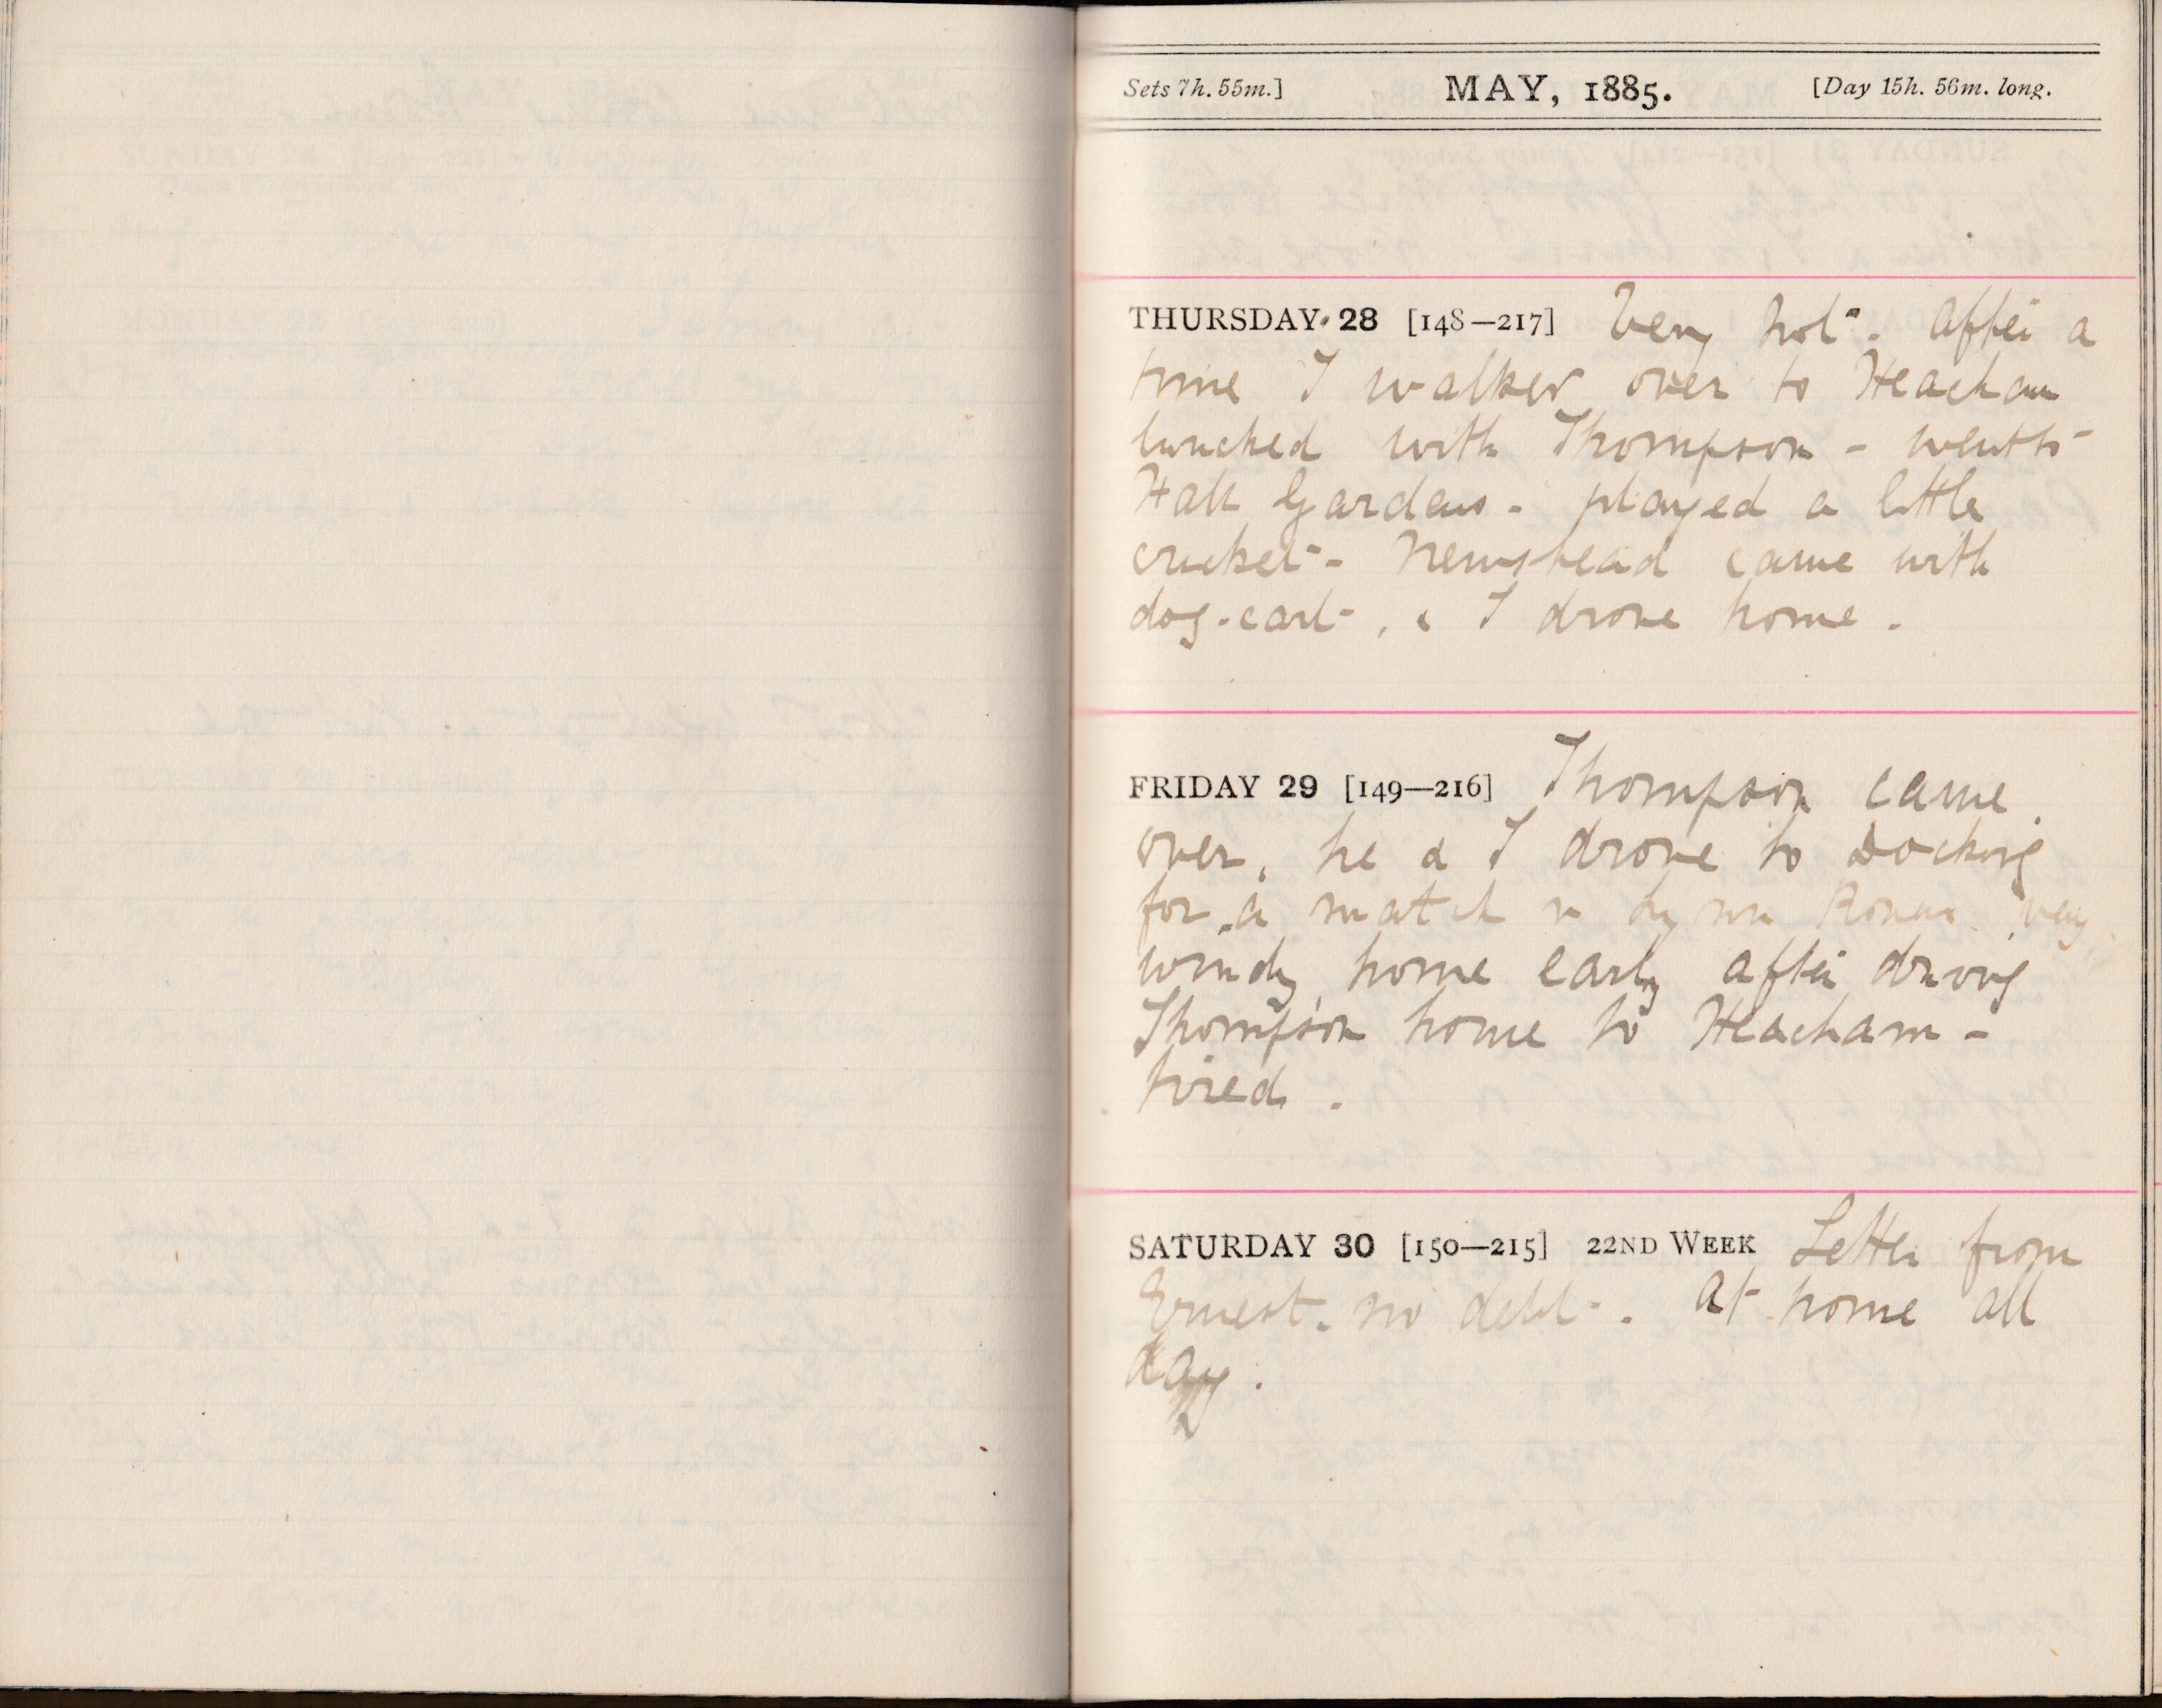 Sets 7h. 55m.] MAY, 1885. [Day 15h. 56m. long.
THURSDAY 28 [148—217] Very hot. After a
time I walked over to Heacham
lunched with Thompson - went to
Hall Gardens - played a little
cricket - Newstead came with
dog-cart, & I drove home.
FRIDAY 29 [149—216] Thompson came
over, he & I drove to Docking
for a match v Lynn Rovers. very
windy, home early after driving
Thompson home to Heacham -
tired.
SATURDAY 30 [150—215] 22ND WEEK Letter from
Ernest. no debt. At home all
day.